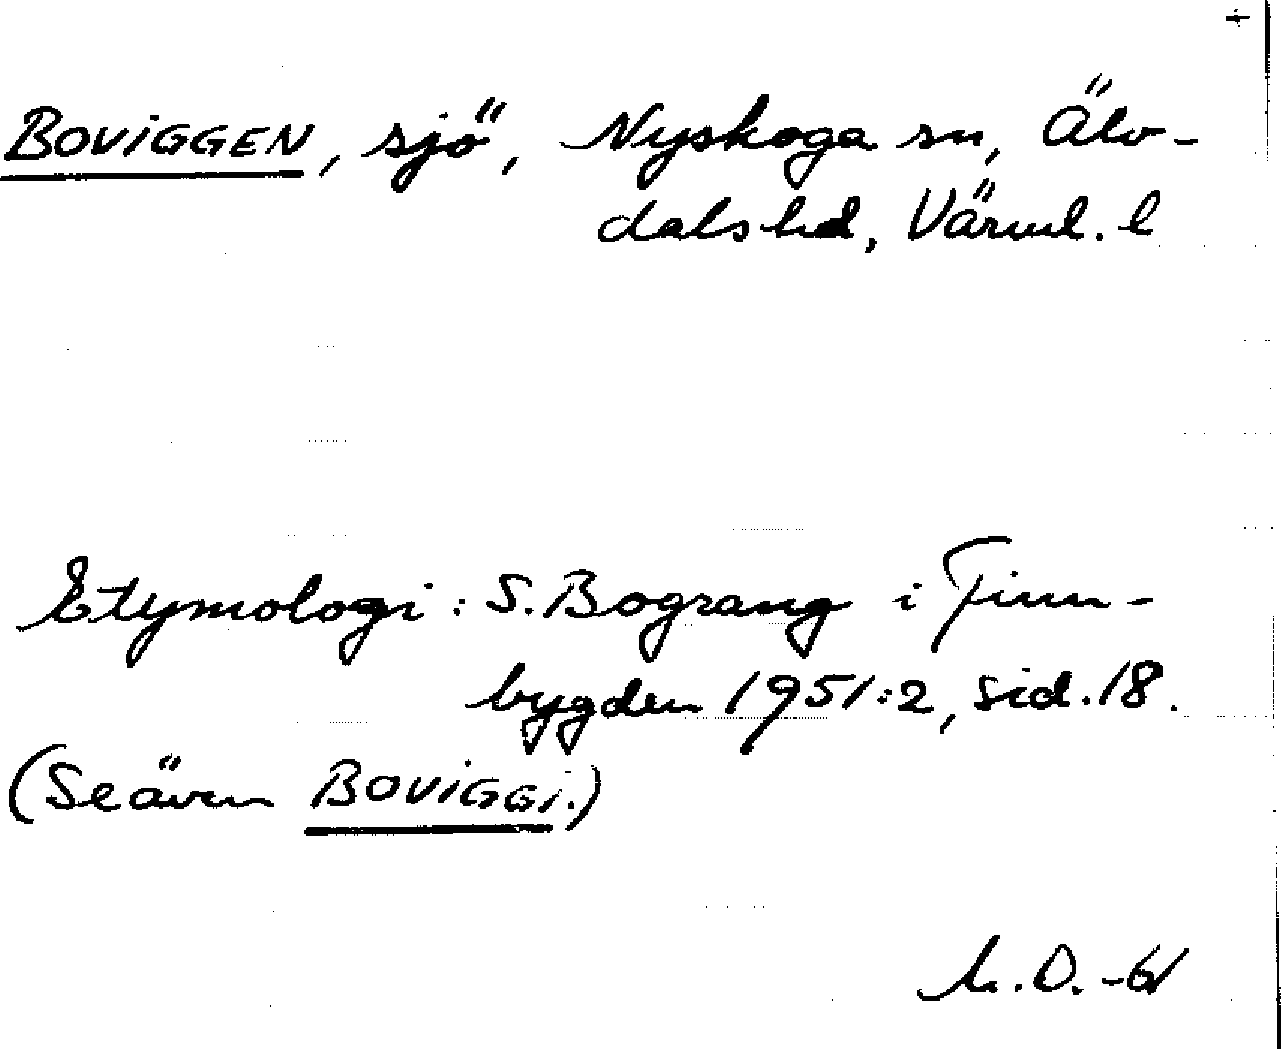 +
BOVIGGEN, sjö, Nyskoga sn, Älv-
dals hd, Värml. l
Etymologi: S. Bograng i Finn-
bygden 1951:2, sid. 18.
(Se även BOVIGGI.)
D. -61